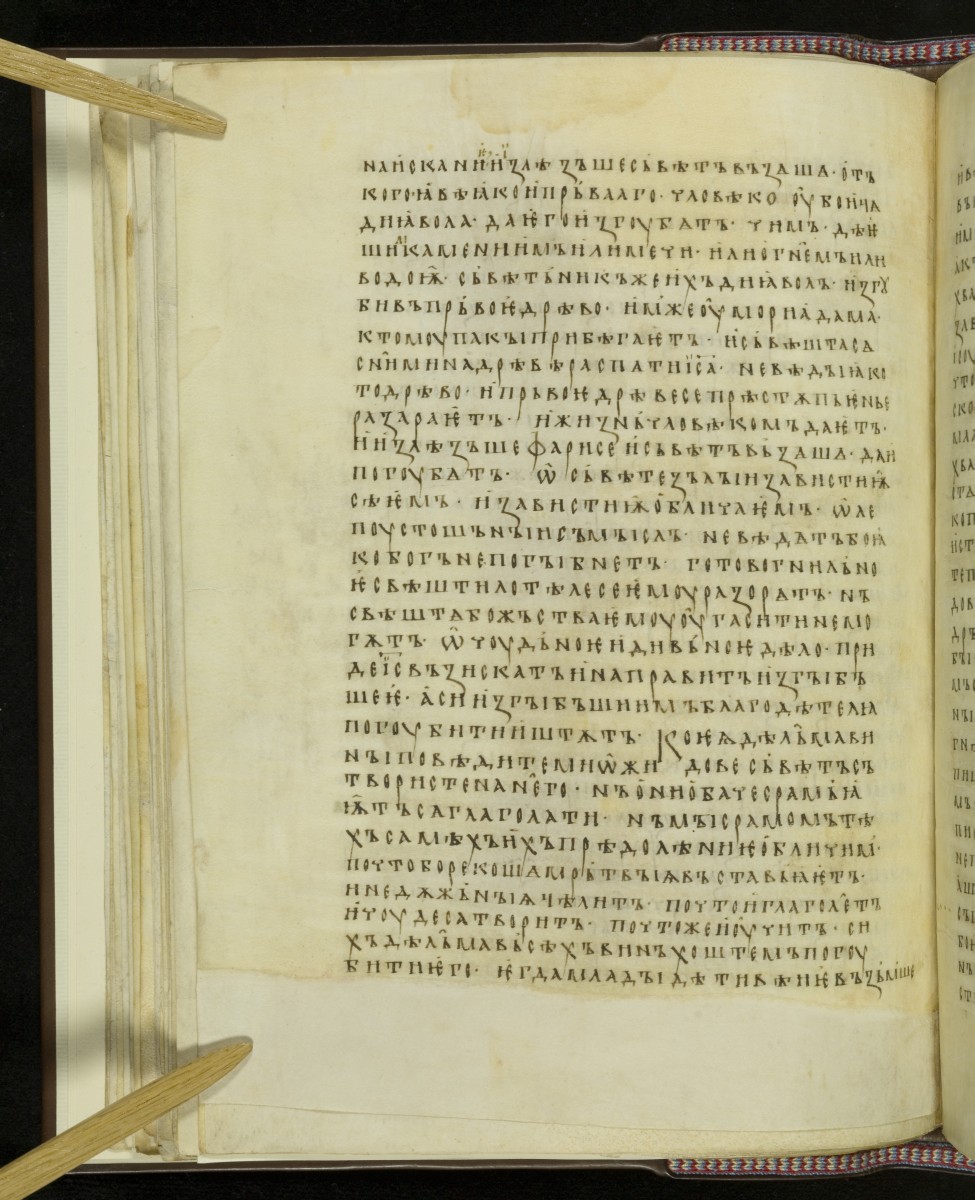 наи҆скани҆и҆ꙁлѣ ꙁъшесъвѣтъвъꙁаша · о҆тъ
кого · ꙗ҆вѣꙗ҆кои҆прьваго · чловѣко оу҆бои҆ча
диꙗ҆вола · даѥ҆гои҆ꙁгоубѧтъ · чимь · дѣи҆
шикамениимьилимечи · илиогн҄емьили
водоѭ҆ · съвѣтьникъжеи҆хъдиꙗ҆волъ · иꙁгꙋ
бивъпрьвоѥ҆дрѣво · и҆мьжеоу҆мориа҆дама ·
ктомоупакъıприбѣгаѥ҆тъ · и҆съвѣштасѧ
сн҄иминадрѣвѣраспѧтиі҆са҆ · невѣдъıꙗ҆ко
тодрѣво · и҆прьвоѥдрѣвесепрѣстѫпьѥнье
раꙁараѥ҆тъ · и҆жиꙁньчловѣкомъдаѥтъ ·
и҆и҆ꙁлѣꙁъшефарисеи҆съвѣтъвьꙁаша · даи
погоубѧтъ · ѡ҆ съвѣтеꙁълъıиꙁавистиѭ҆
сѣѥ҆мъ · и҆ꙁавистиѭо҆бличаѥмъ · ѡ҆ле
поустошьнъıисъмъıслъ · невѣдѧтъбоꙗ҆
кобогънепогъıбнетъ · готовогнильно
ѥ҆свѣштилотѣлесеѥ҆моураꙁорѧтъ · нъ
свѣштабожьстваѥ҆моуоу҆гаситинемо
гѫтъ · ѡ҆чоудьноѥи҆дивьноѥдѣло · при
деі҆свъꙁискатъи҆направитъи҆ꙁгъıбъ
шеѥ҆ · а҆сии҆ꙁгъıбъшиимъблагодѣтелꙗ
погоубитии҆штѫтъ · Коѥѧдѣл҄ьмави
нъıповѣдитемиѡ҆жидовесъвѣтъсъ
твористенан҄его · нъо҆нио҆бачесрамлꙗ҆
ѭ҆тъсѧглаголати · нъмъıсрамомътѣ
хъсамѣхъи҆хъпрѣдолѣниѥо҆бличимъ ·
почтоборекошамрьтвъıѧвъставьꙗ҆ѥтъ ·
инедѫжьнъıѧчѣлитъ · почтои҆глагол҄етъ
и҆чоудесатворитъ · почтожеи҆оу҆читъ · си
хъдѣл҄ьмавьсѣхъвинъхоштемъпогоу
битиѥ҆го · ѥ҆гдамладъıдѣтивѣниѥ҆въꙁьмъше